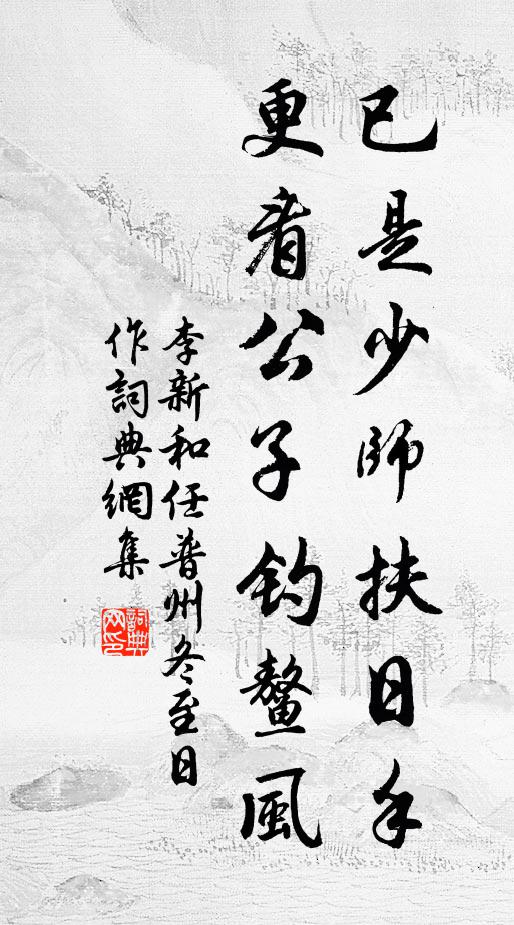 已是少師扶日手
更看公子釣鰲風
李新和任普州冬至日
作詞典網集
詞典
网印